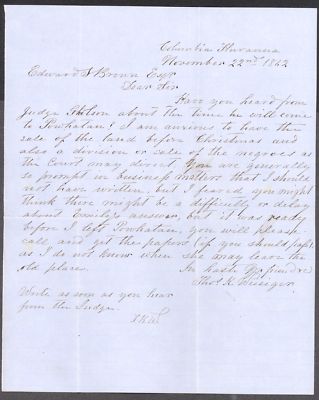 Columbia Fluvanna
November 22nd 1862
Edward S Brown Esqr
Dear Sir
Have you heard from
Judge about the time he will come
to Powhatan? I am anxious to have the
sale of the land before Christmas and
also a division or sale of the negroes as
the Court may direct You are generally
so prompt in business matters that I should
not have written, but I feared you might
think there might be a difficulty or delay
about Emily's answer, but it was ready
before I left Powhatan, you will please
call, and get the papers (if you should fast
as I do not know when she may leave the
old place.
In haste Yr friend &c
Thos. K.
Write as soon as you hear
from the Judge.